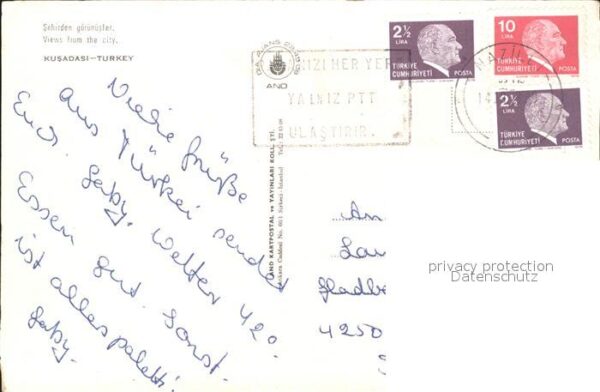 Şehirden görünüşler.
Views from the city.
KUŞADASI-TURKEY
AND
2½
LİRA
TÜRKİYE
CUMHURİYETİ
POSTA
10
LİRA
TÜRKİYE
CUMHURİYETİ
POSTA
2½
LİRA
TÜRKİYE
CUMHURİYETİ
POSTA
NAZİLLİ
HER YERE
YALNIZ PTT
ULAŞTIRIR.
AND KARTPOSTAL ve YAYINLARI KOLL. ŞTİ.
Ankara Caddesi No. Sirkeci - İstanbul
Viele Grüße
aus Türkei sendet
Euch Gaby. Wetter 42°.
Essen gut. Sonst
ist alles paletti
Gaby.
An
Gladbe
4250
privacy protection
Datenschutz